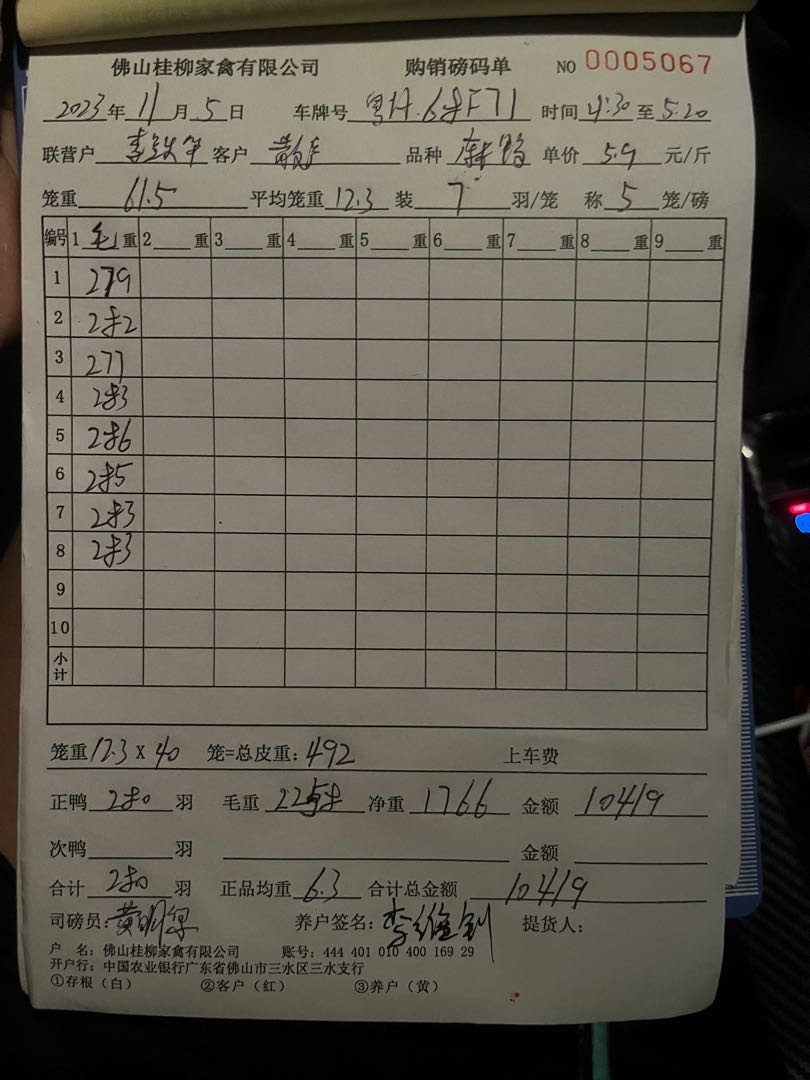 佛山桂柳家禽有限公司 购销磅码单 NO 0005067
2023年 11月 5日 车牌号 粤A.68F71 时间 4:30 至 5.20
联营户 客户 品种 单价 5.9 元/斤
笼重 61.5 平均笼重 12.3 装 7 羽/笼 称 5 笼/磅
编号 1 毛 重 2 重 3 重 4 重 5 重 6 重 7 重 8 重 9 重
1 279
2 282
3 277
4 283
5 286
6 285
7 283
8 283
9
10
小计
笼重 12.3 X 40 笼=总皮重: 492 上车费
正鸭 280 羽 毛重 2258 净重 1766 金额 10419
次鸭 羽 金额
合计 280 羽 正品均重 6.3 合计总金额 10419
司磅员: 养户签名: 提货人:
户 名: 佛山桂柳家禽有限公司 账号: 444 401 010 400 169 29
开户行: 中国农业银行广东省佛山市三水区三水支行
①存根（白） ②客户（红） ③养户（黄）